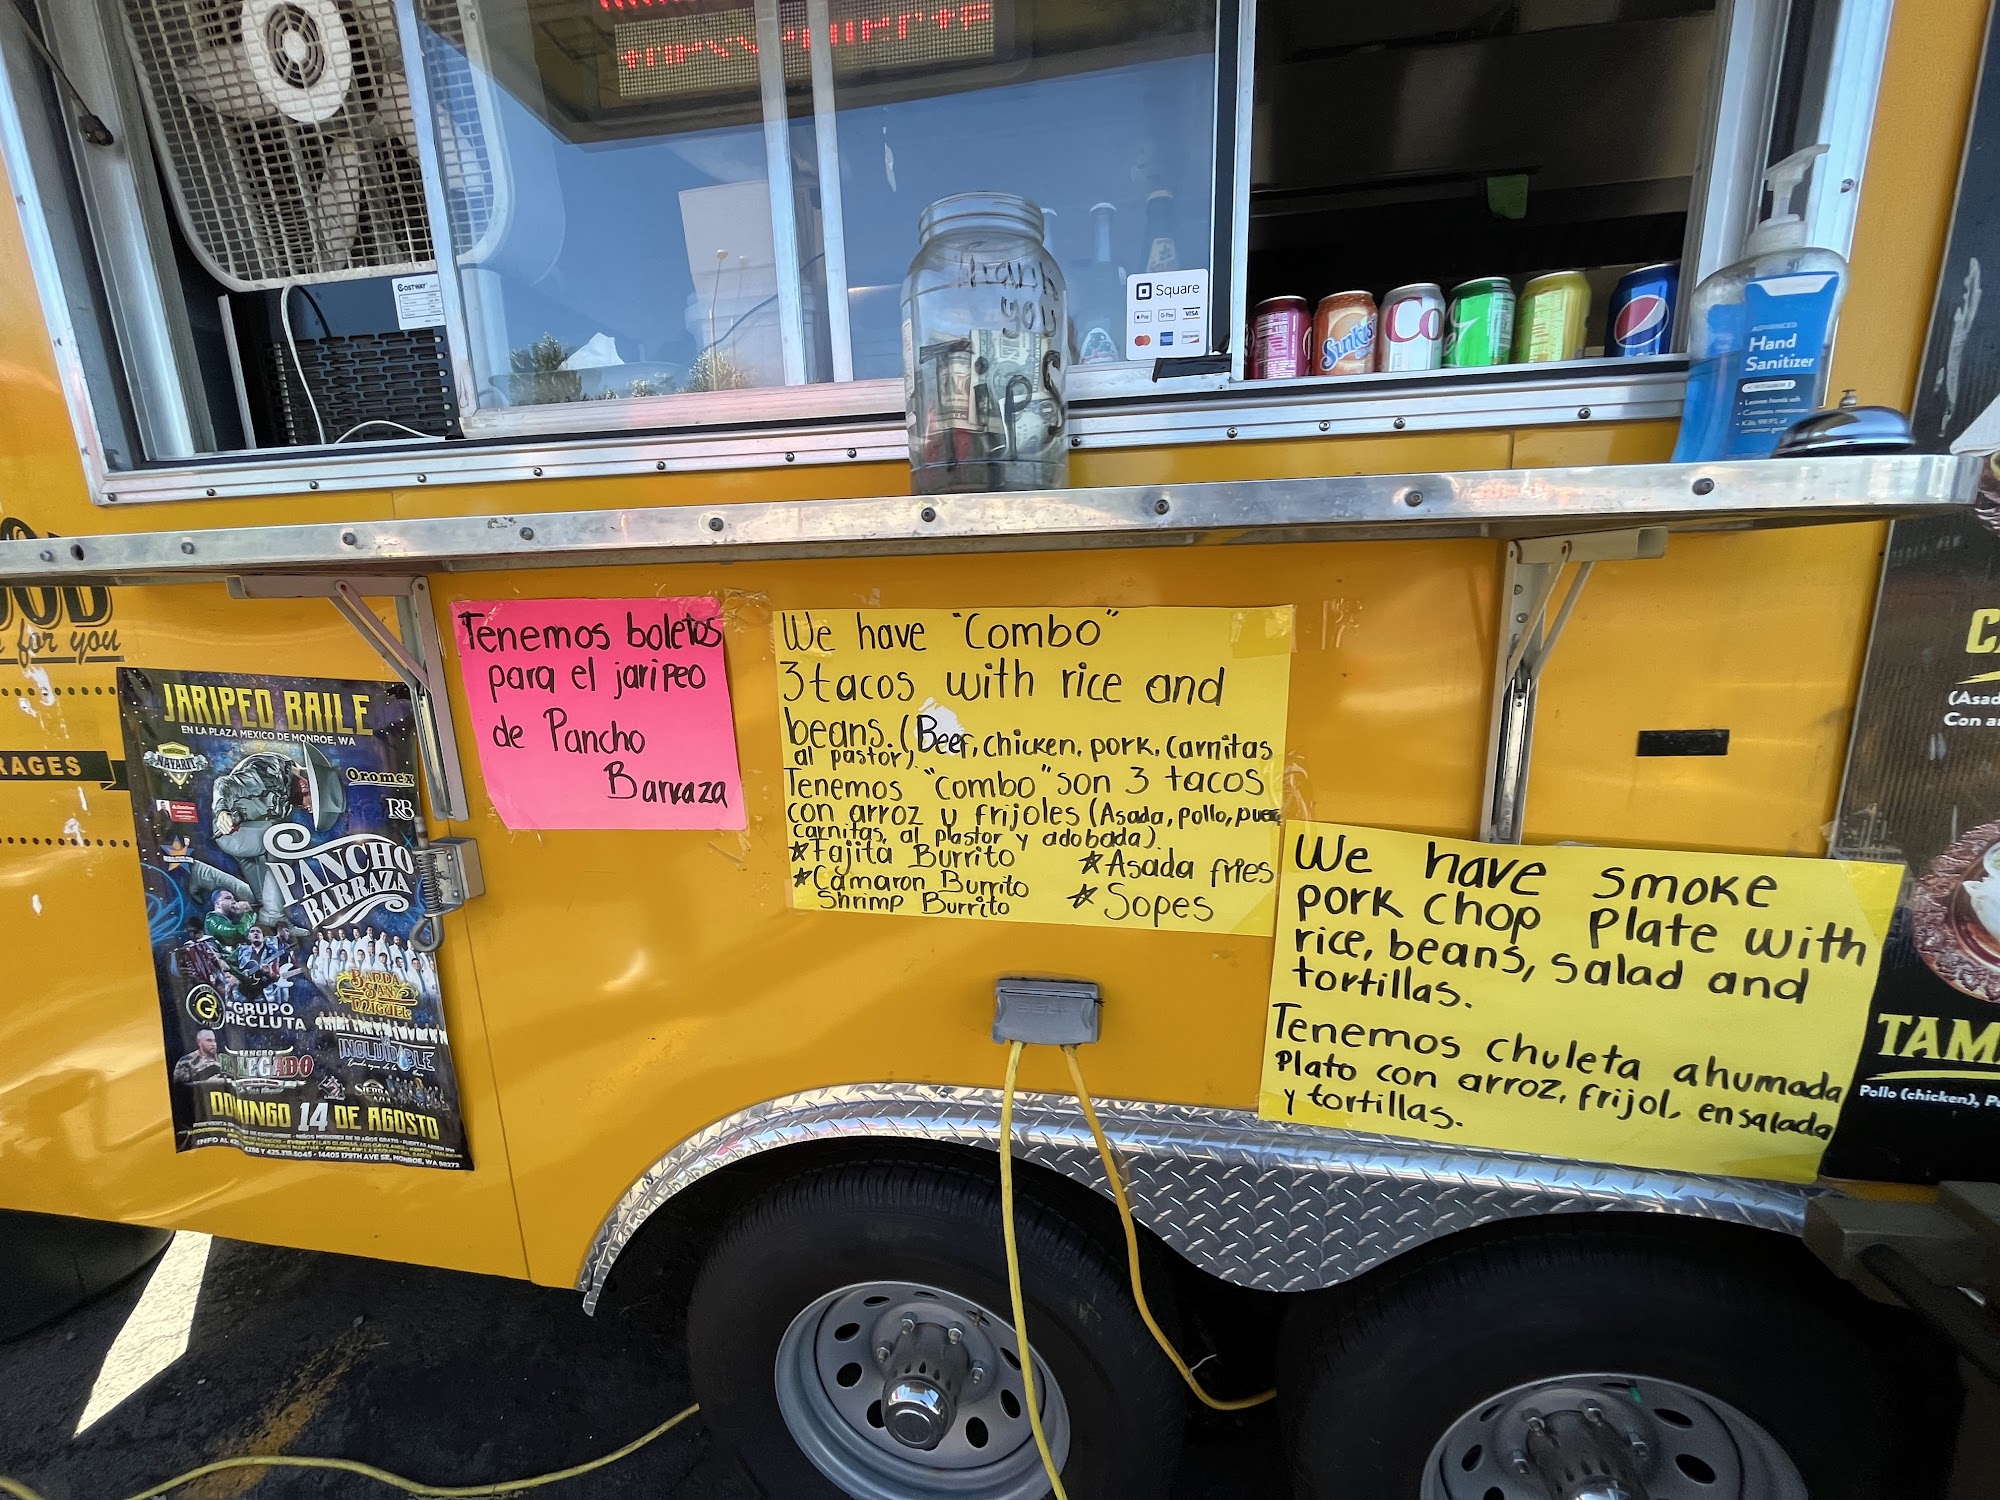 COSTWAY
Thank
you
Tips
Square
Pay
G Pay
VISA
Sunkist
Co
ADVANCED
Hand
Sanitizer
OOD
for you
RAGES
JARIPEO BAILE
EN LA PLAZA MEXICO DE MONROE, WA
NAYARIT
Oromex
RB
PANCHO
BARRAZA
BANDA
SAN
MIGUEL
GRUPO
RECLUTA
INOLVIDABLE
DOMINGO 14 DE AGOSTO
14405 179TH AVE SE, MONROE, WA 98272
Tenemos boletos
para el jaripeo
de Pancho
Barraza
We have "Combo"
3 tacos with rice and
beans. (Beef, chicken, pork, carnitas
al pastor).
Tenemos "combo" son 3 tacos
con arroz y frijoles (Asada, pollo, puer
carnitas, al pastor y adobada).
★Fajita Burrito ★Asada fries
★Camaron Burrito ★Sopes
Shrimp Burrito
We have smoke
pork chop Plate with
rice, beans, salad and
tortillas.
Tenemos chuleta ahumada
Plato con arroz, frijol, ensalada
y tortillas.
BELL
(Asad
Con a
TAM
Pollo (chicken), P